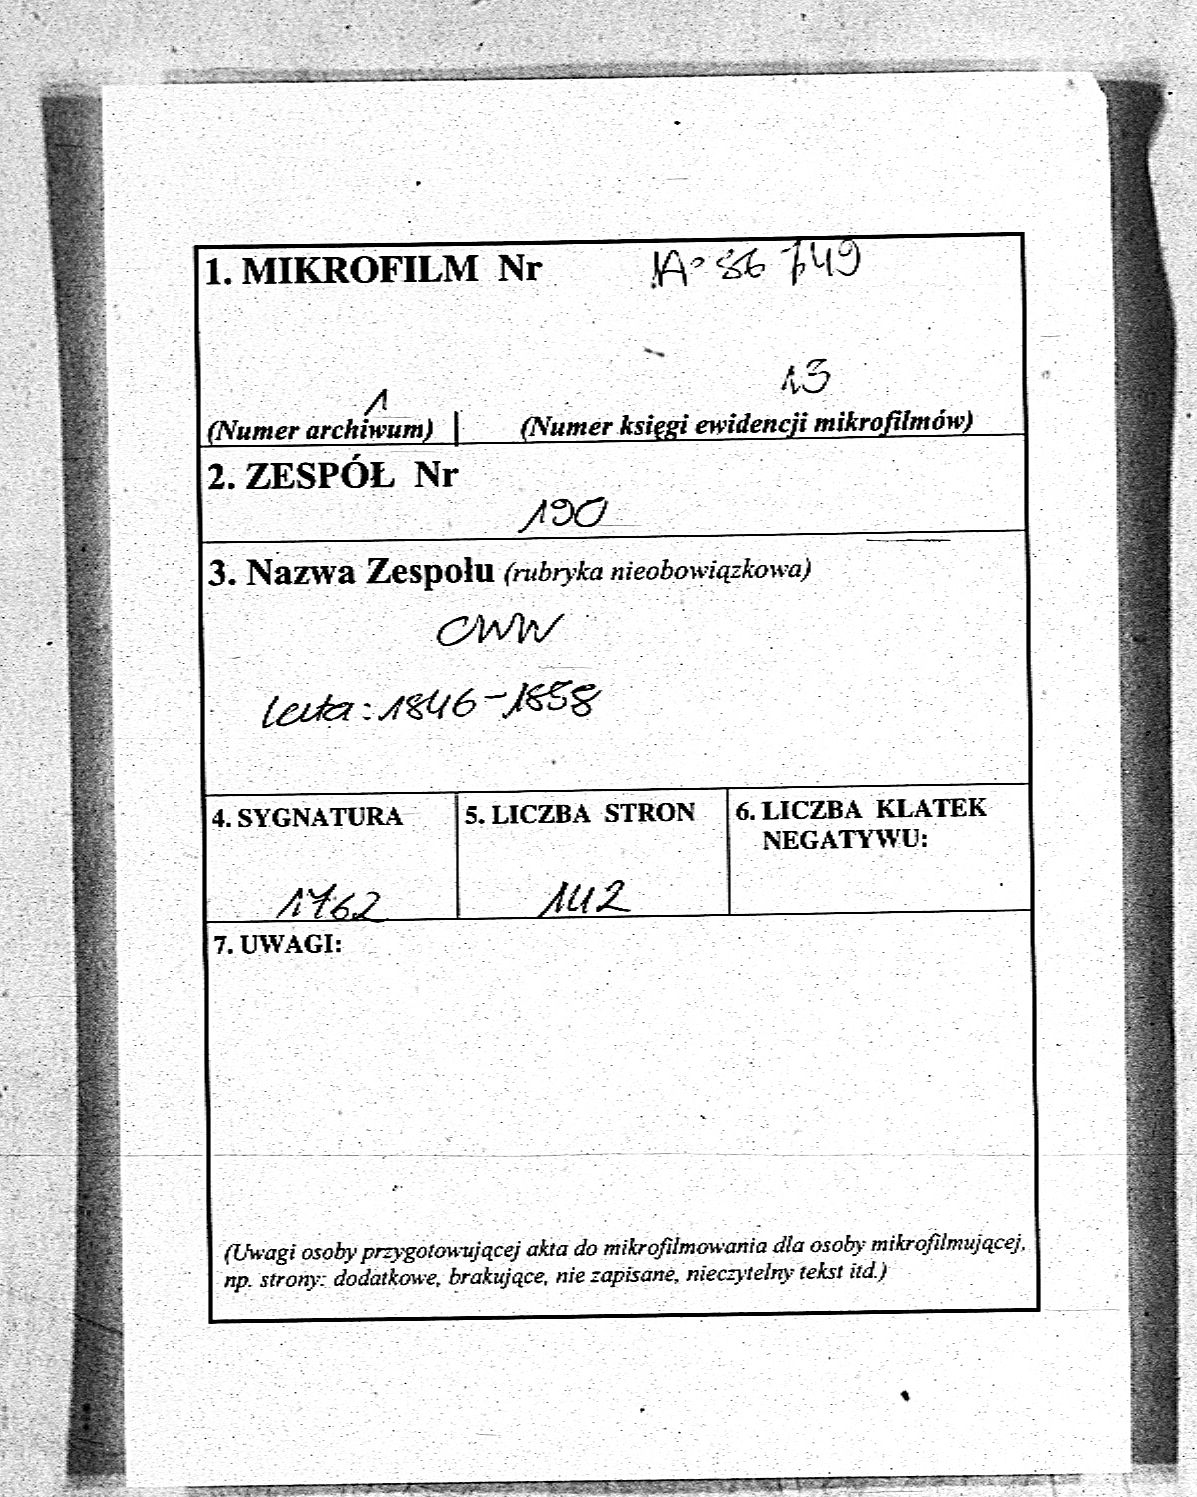 1. MIKROFILM Nr A° 86 749
1 13
(Numer archiwum) (Numer księgi ewidencji mikrofilmów)
2. ZESPÓŁ Nr
190
3. Nazwa Zespołu (rubryka nieobowiązkowa)
CWW
lata: 1846-1858
4. SYGNATURA 5. LICZBA STRON 6. LICZBA KLATEK
NEGATYWU:
1762 142
7. UWAGI:
(Uwagi osoby przygotowującej akta do mikrofilmowania dla osoby mikrofilmującej,
np. strony: dodatkowe, brakujące, nie zapisane, nieczytelny tekst itd.)